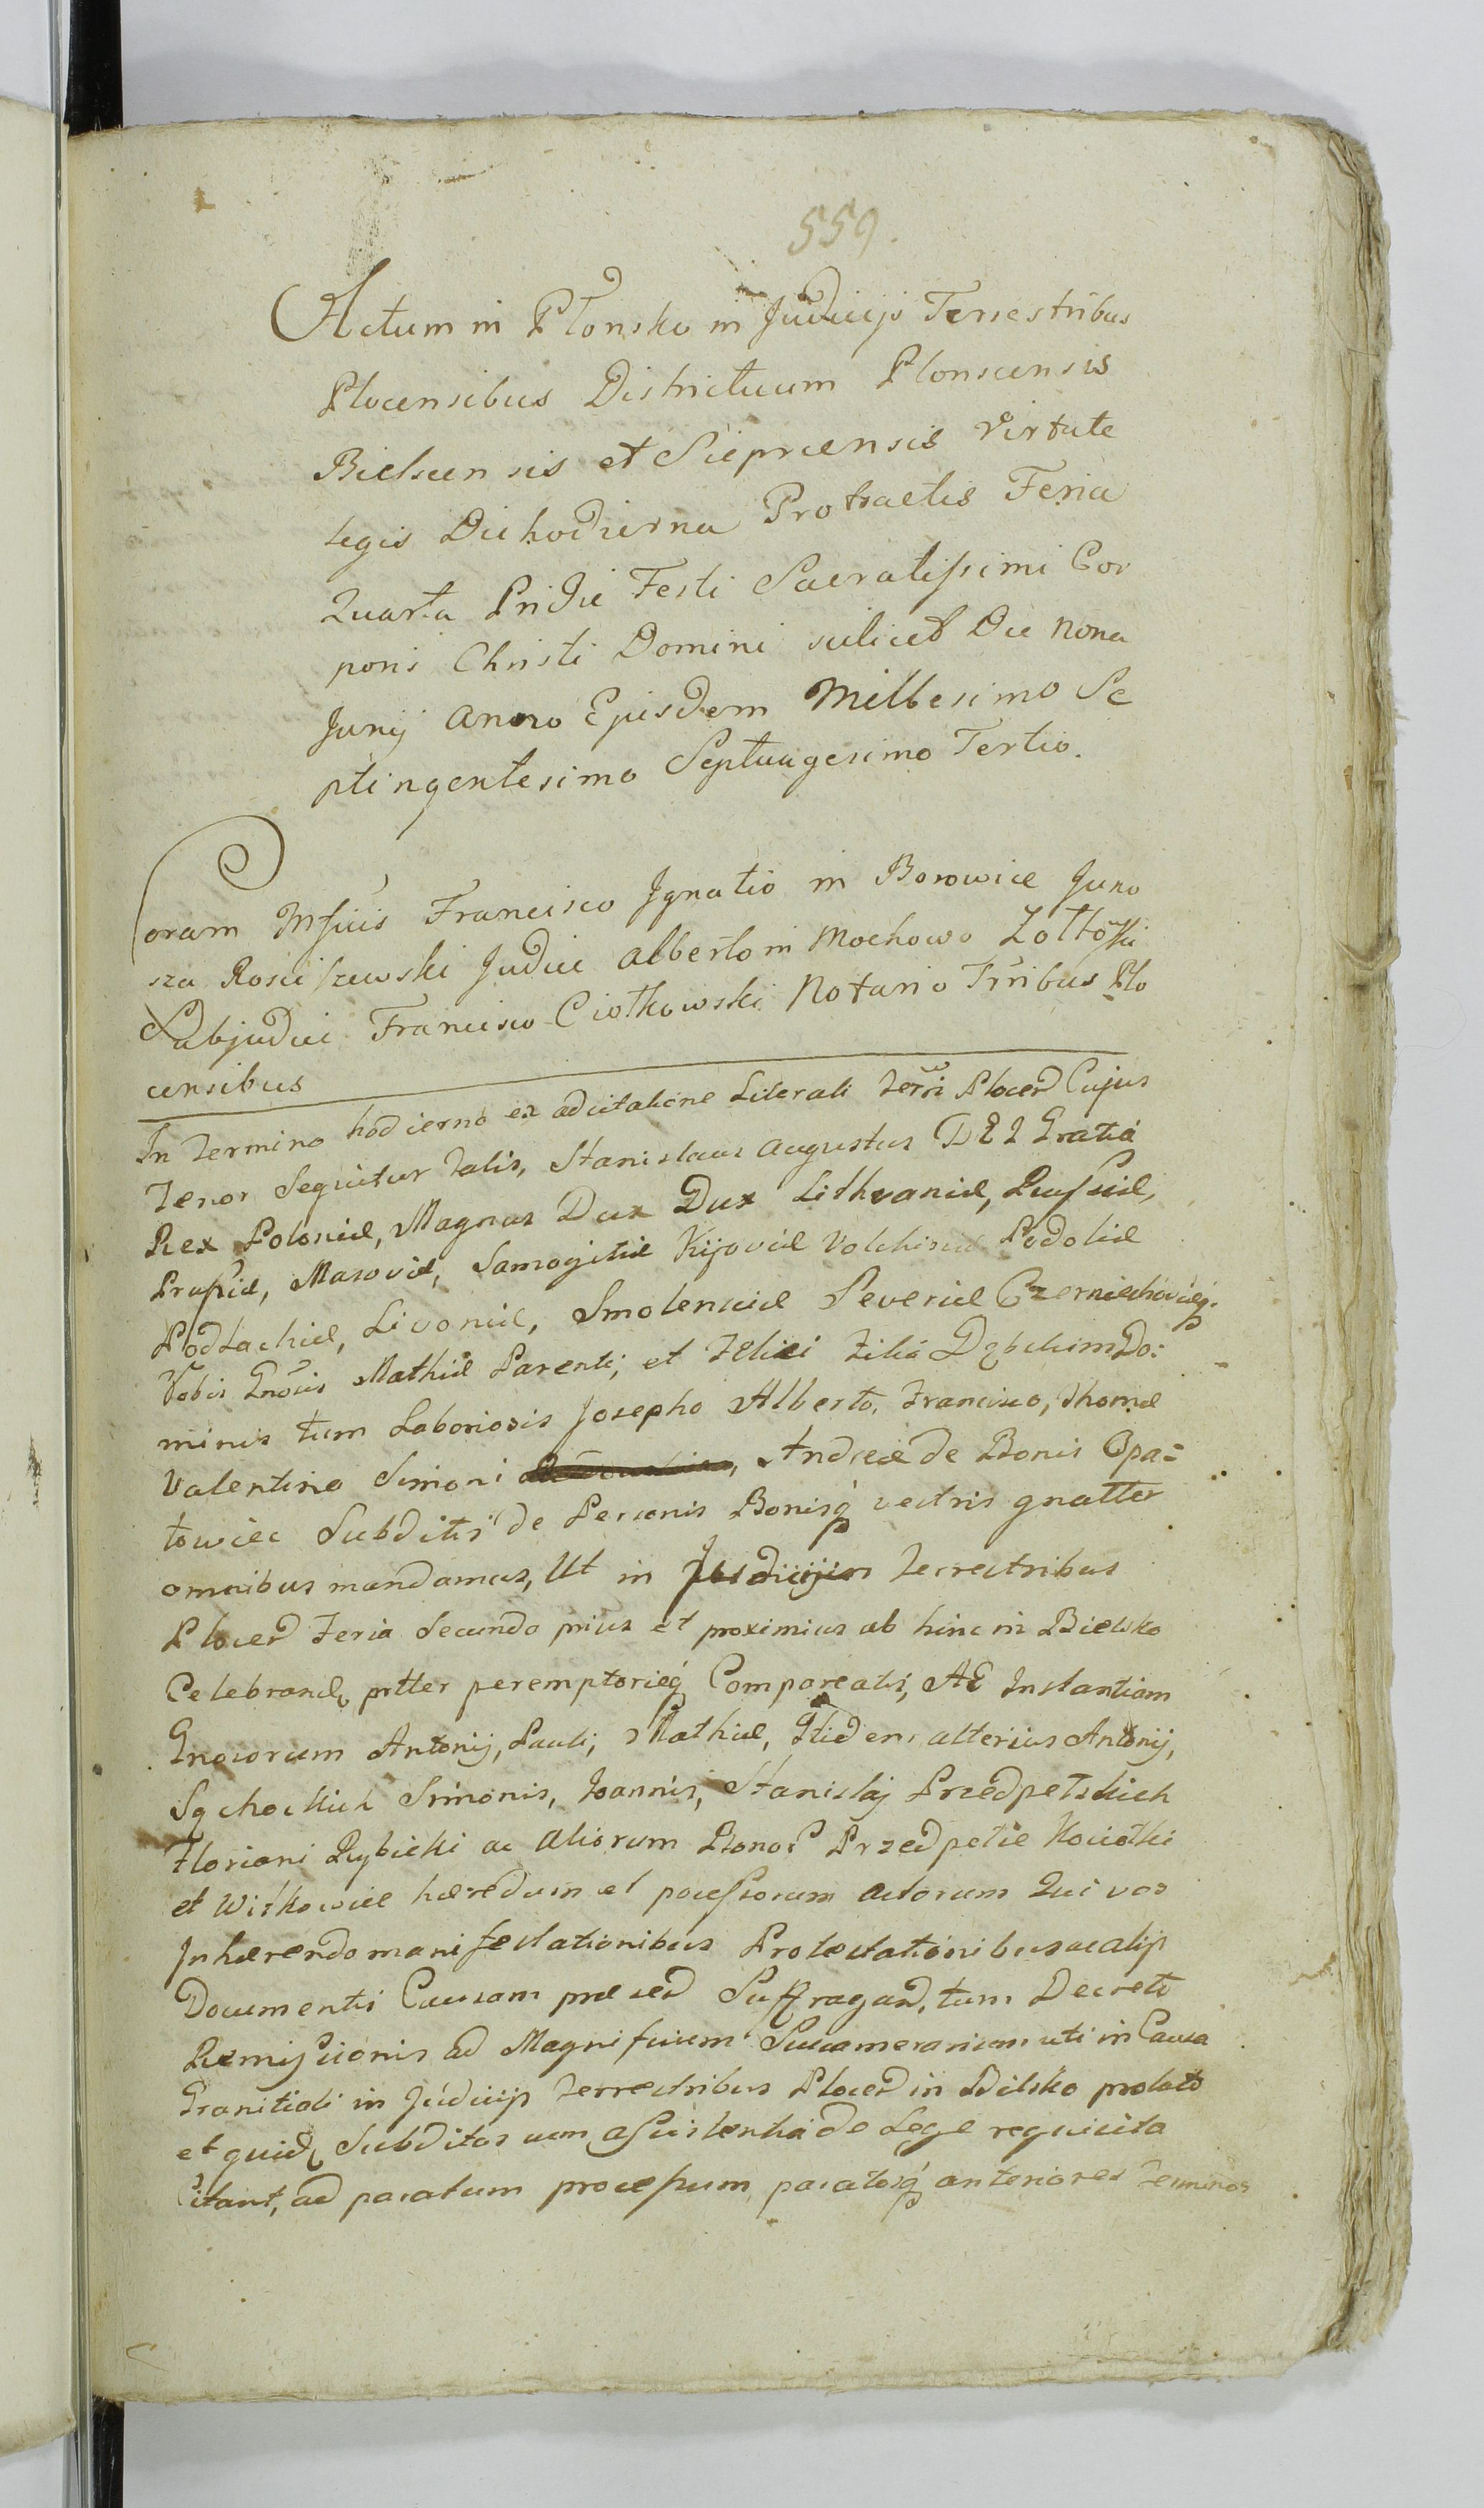 559.
Actum in Płonsko in Judicijs Terrestribus
Plocensibus Districtuum Plonscensis
Bielscensis et Sieprcensis Virtute
legis Die hodierna Protractis Feria
Quarta Pridie Festi Sacratissimi Cor
poris Christi Domini scilicet Die nona
Junij Anno Ejusdem Millesimo Se
ptingentesimo Septuagesimo Tertio.
Coram Mficis Francisco Ignatio in Borowice Juno
sza Rosciszewski Judice Alberto in Mochowo Zołtowski
Subjudice Francisco Ciołkowski Notario Trribus Plo
censibus
In Termino hodierno ex adcitatione Literali Terri Plocen Cujus
Tenor Sequitur Talis, Stanislaus Augustus DEI Gratiá
Rex Poloniæ, Magnus Dux Dux Lithvaniæ, Russiæ,
Prussiæ, Masoviæ, Samogitiæ Kijoviæ Volhiniæ Podoliæ
Podlachiæ, Livoniæ, Smolensciæ Severiæ Czerniechoviæq.
Vobis Gnosis Mathiæ Parenti, et Felici Filio Dębskim Do:
minis tum Laboriosis Josepho Alberto, Francisco, Thomæ
Valentino Simoni, Andreæ de Bonis Opa=
towiec Subditis de Personis Bonisq vestris gnatter
omnibus mandamus, Ut in Judicijs Terrestribus
Plocen Feria Secunda prius et proximius ab hinc in Bielsko
Celebrand, ptter peremptorieq Compareatis, AE Instantiam
Gnosorum Antonij, Pauli, Mathiæ, Itidem alterius Antonij,
Sąchockich Simonis, Joannis, Stanislaj Przedpełskich
Floriani Rybicki ac Aliorum Bonor Przedpełce Kociołki
et Witkowice hæredum et possessorum Actorum Qui vos
Inhærendo manifestationibus Protestationibus ac alijs
Documentis Causam præsen Suffragand, tum Decreto
Remissionis ad Magnificum Succamerarium uti in Causa
Granitiali in Judicijs Terrestribus Plocen in Bilsko prolato
et quid, Subditos cum assistentiá de Lege requisita
Citant, ad pacatum processum pacatosq anteriores Terminos